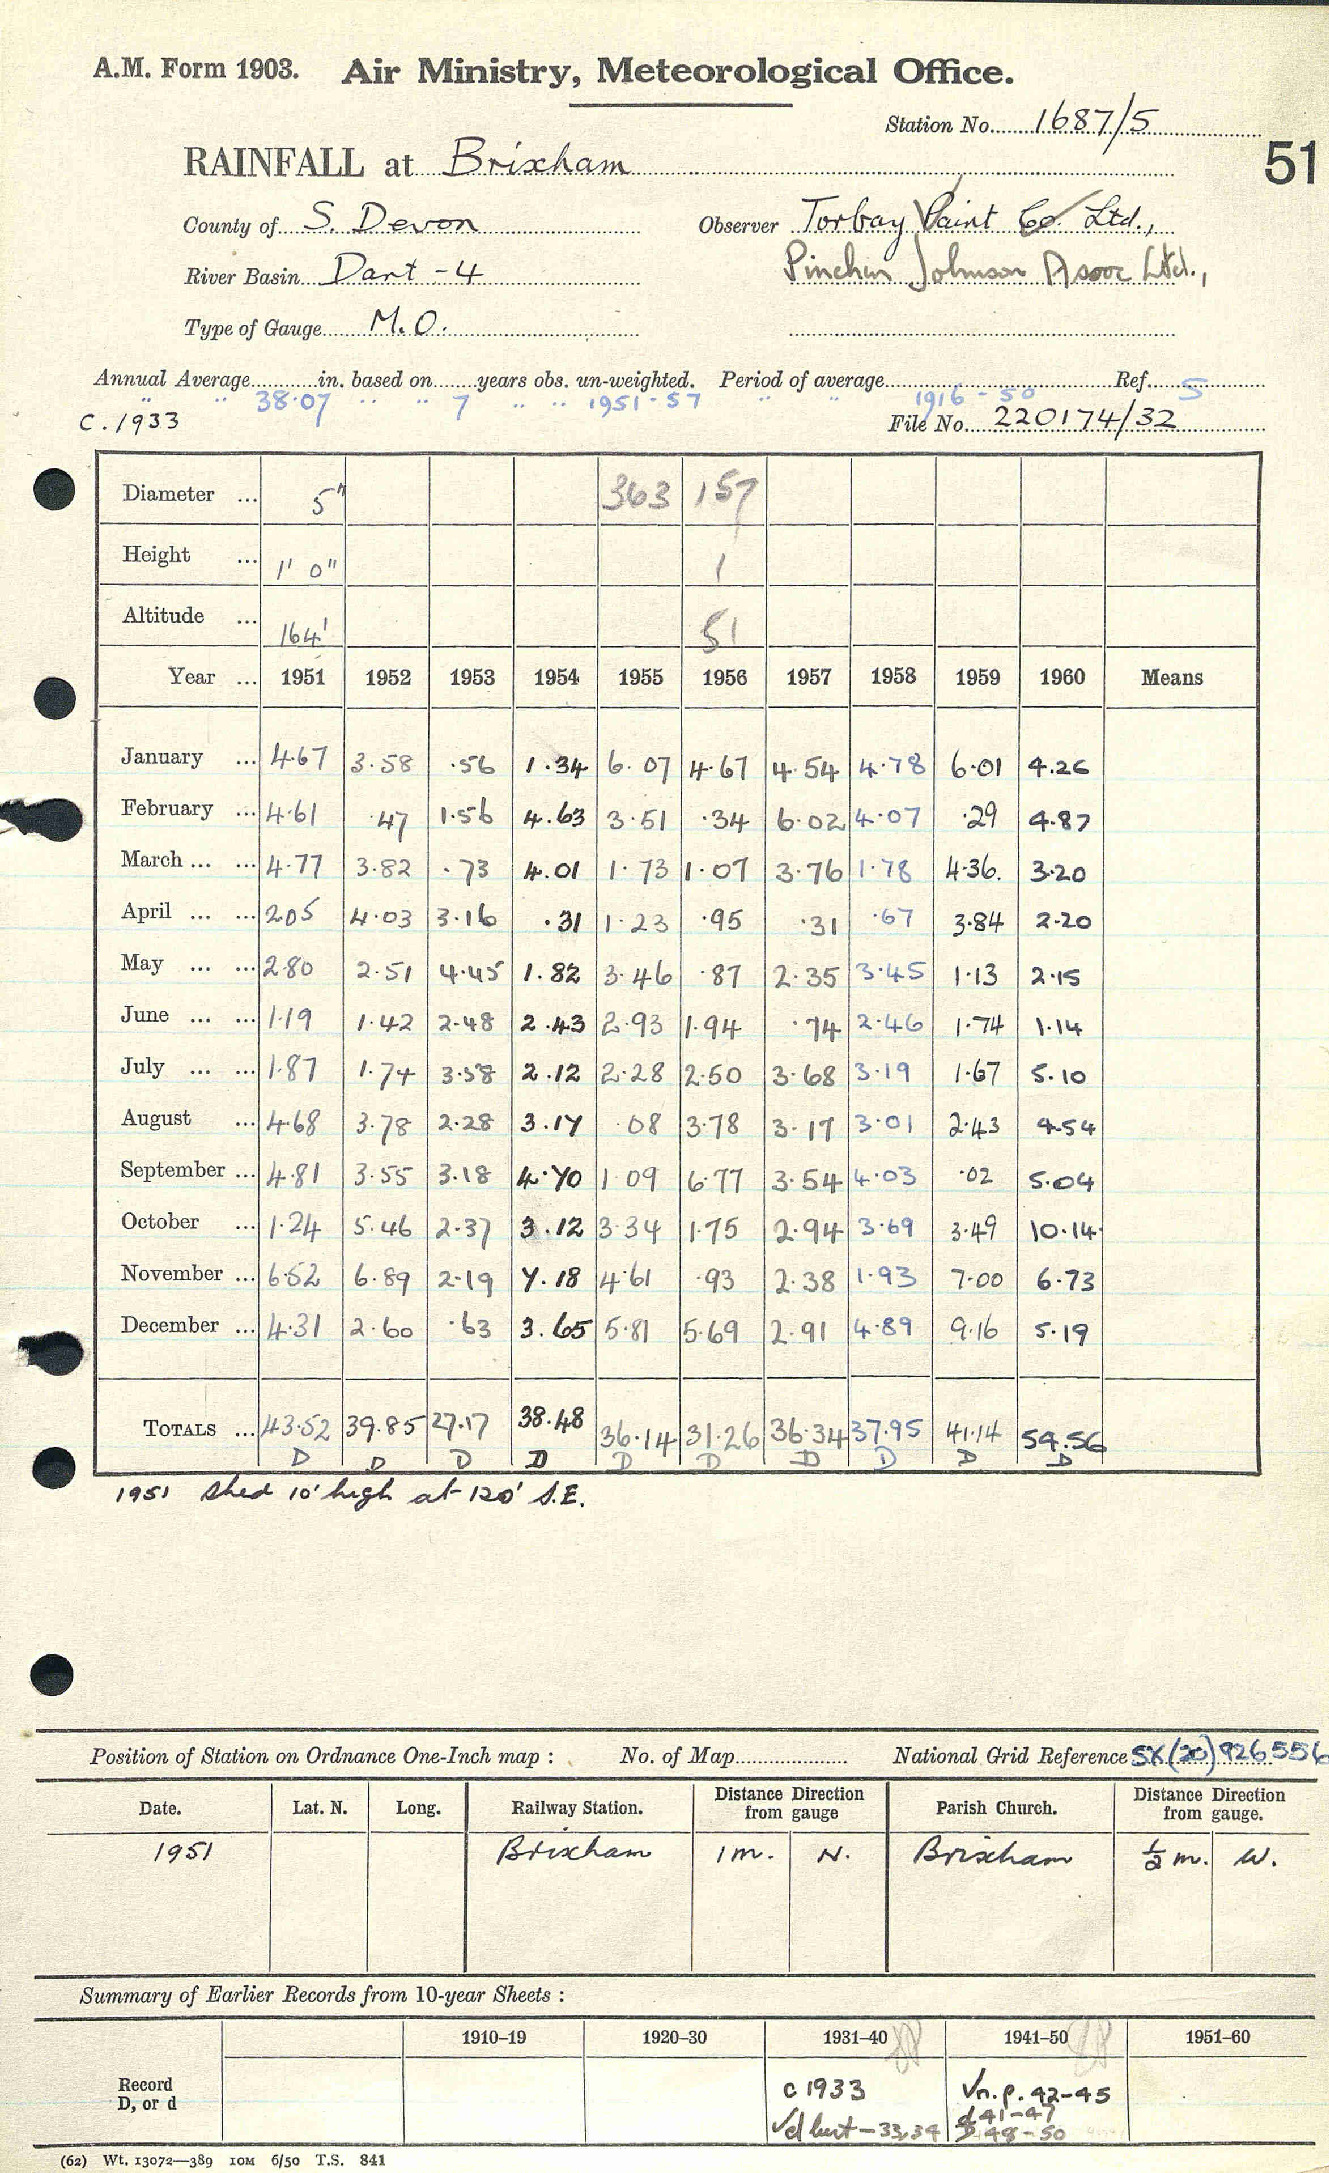 A.M. Form 1903. Air Ministry, Meteorological Office.
Station No. 1687/5
51
RAINFALL at Brixham
County of S. Devon Observer Torbay Paint Co. Ltd.,
River Basin Dart - 4 Pinchin Johnson Assoc Ltd.,
Type of Gauge M.O.
Annual Average in. based on years obs. un-weighted. Period of average Ref. S
" " 38.07 " " 7 " " 1951-57 " " 1916-50
C. 1933 File No. 220174/32
Diameter ... 5" 363 157
Height ... 1' 0" 1
Altitude ... 164' 51
Year ... 1951 1952 1953 1954 1955 1956 1957 1958 1959 1960 Means
January ... 4.67 3.58 .56 1.34 6.07 4.67 4.54 4.78 6.01 4.26
February ... 4.61 .47 1.56 4.63 3.51 .34 6.02 4.07 .29 4.87
March ... ... 4.77 3.82 .73 4.01 1.73 1.07 3.76 1.78 4.36. 3.20
April ... ... 2.05 4.03 3.16 .31 1.23 .95 .31 .67 3.84 2.20
May ... ... 2.80 2.51 4.45 1.82 3.46 .87 2.35 3.45 1.13 2.15
June ... ... 1.19 1.42 2.48 2.43 2.93 1.94 .74 2.46 1.74 1.14
July ... ... 1.87 1.74 3.58 2.12 2.28 2.50 3.68 3.19 1.67 5.10
August ... 4.68 3.78 2.28 3.17 .08 3.78 3.17 3.01 2.43 4.54
September ... 4.81 3.55 3.18 4.70 1.09 6.77 3.54 4.03 .02 5.04
October ... 1.24 5.46 2.37 3.12 3.34 1.75 2.94 3.69 3.49 10.14
November ... 6.52 6.89 2.19 7.18 4.61 .93 2.38 1.93 7.00 6.73
December ... 4.31 2.60 .63 3.65 5.81 5.69 2.91 4.89 9.16 5.19
TOTALS ... 43.52 39.85 27.17 38.48 36.14 31.26 36.34 37.95 41.14 54.56
D D D D D D D D D D
1951 shed 10' high at 120' S.E.
Position of Station on Ordnance One-Inch map : No. of Map National Grid Reference SX (20) 926556
Date. Lat. N. Long. Railway Station. Distance from gauge Direction Parish Church. Distance from gauge. Direction
1951 Brixham 1 m. N. Brixham ½ m. W.
Summary of Earlier Records from 10-year Sheets :
1910-19 1920-30 1931-40 1941-50 1951-60
Record c 1933 Vn. p. 42-45
D, or d √d but - 33,34 d 41-47
D 48-50
(62) Wt. 13072—389 10M 6/50 T.S. 841